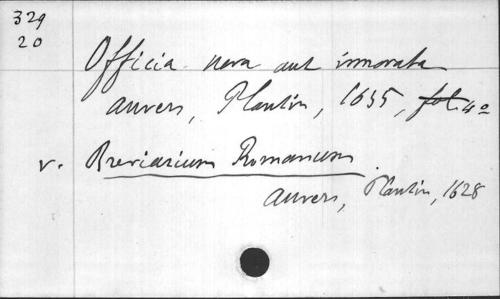 329
20
Officia nova aut innovata
Anvers, Plantin, 1635, fol. 4º
v. Breviarium Romanum.
Anvers, Plantin, 1628